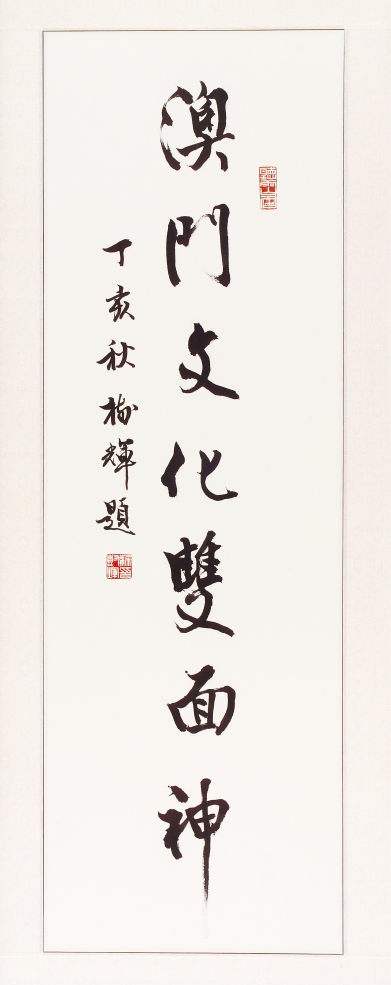 澳門文化雙面神
丁亥秋梅輝題